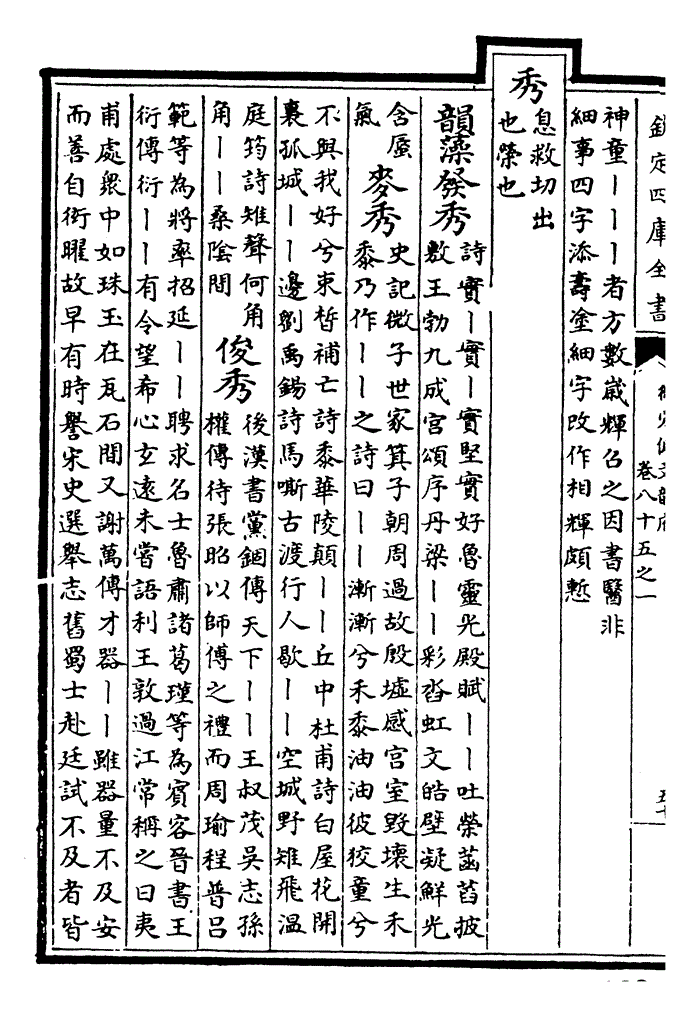 欽定四庫全書
御定佩文韻府
卷八十五之一
神童丨丨者方數歲輝召之因書醫非
細事四字添壽塗細字改作相輝頗慙
秀
息救切出
也榮也
韻藻發秀
詩實丨實丨實堅實好魯靈光殿賦丨丨吐榮菡萏披
敷王勃九成宮頌序丹梁丨丨彩沓虹文皓壁凝鮮光
含蜃
氣
麥秀
史記微子世家箕子朝周過故殷墟感宮室毀壞生禾
黍乃作丨丨之詩曰丨丨漸漸兮禾黍油油彼狡童兮
不與我好兮束晳補亡詩黍華陵顛丨丨丘中杜甫詩白屋花開
裏孤城丨丨邊劉禹錫詩馬嘶古渡行人歇丨丨空城野雉飛溫
庭筠詩雉聲何角
角丨丨桑陰間
俊秀
後漢書黨錮傳天下丨丨王叔茂吳志孫
權傳待張昭以師傅之禮而周瑜程普呂
範等為將率招延丨丨聘求名士魯肅諸葛瑾等為賓客晉書王
衍傳衍丨丨有令望希心玄遠未嘗語利王敦過江常稱之曰夷
甫處衆中如珠玉在瓦石間又謝萬傳才器丨丨雖器量不及安
而善自衒曜故早有時譽宋史選舉志舊蜀士赴廷試不及者皆